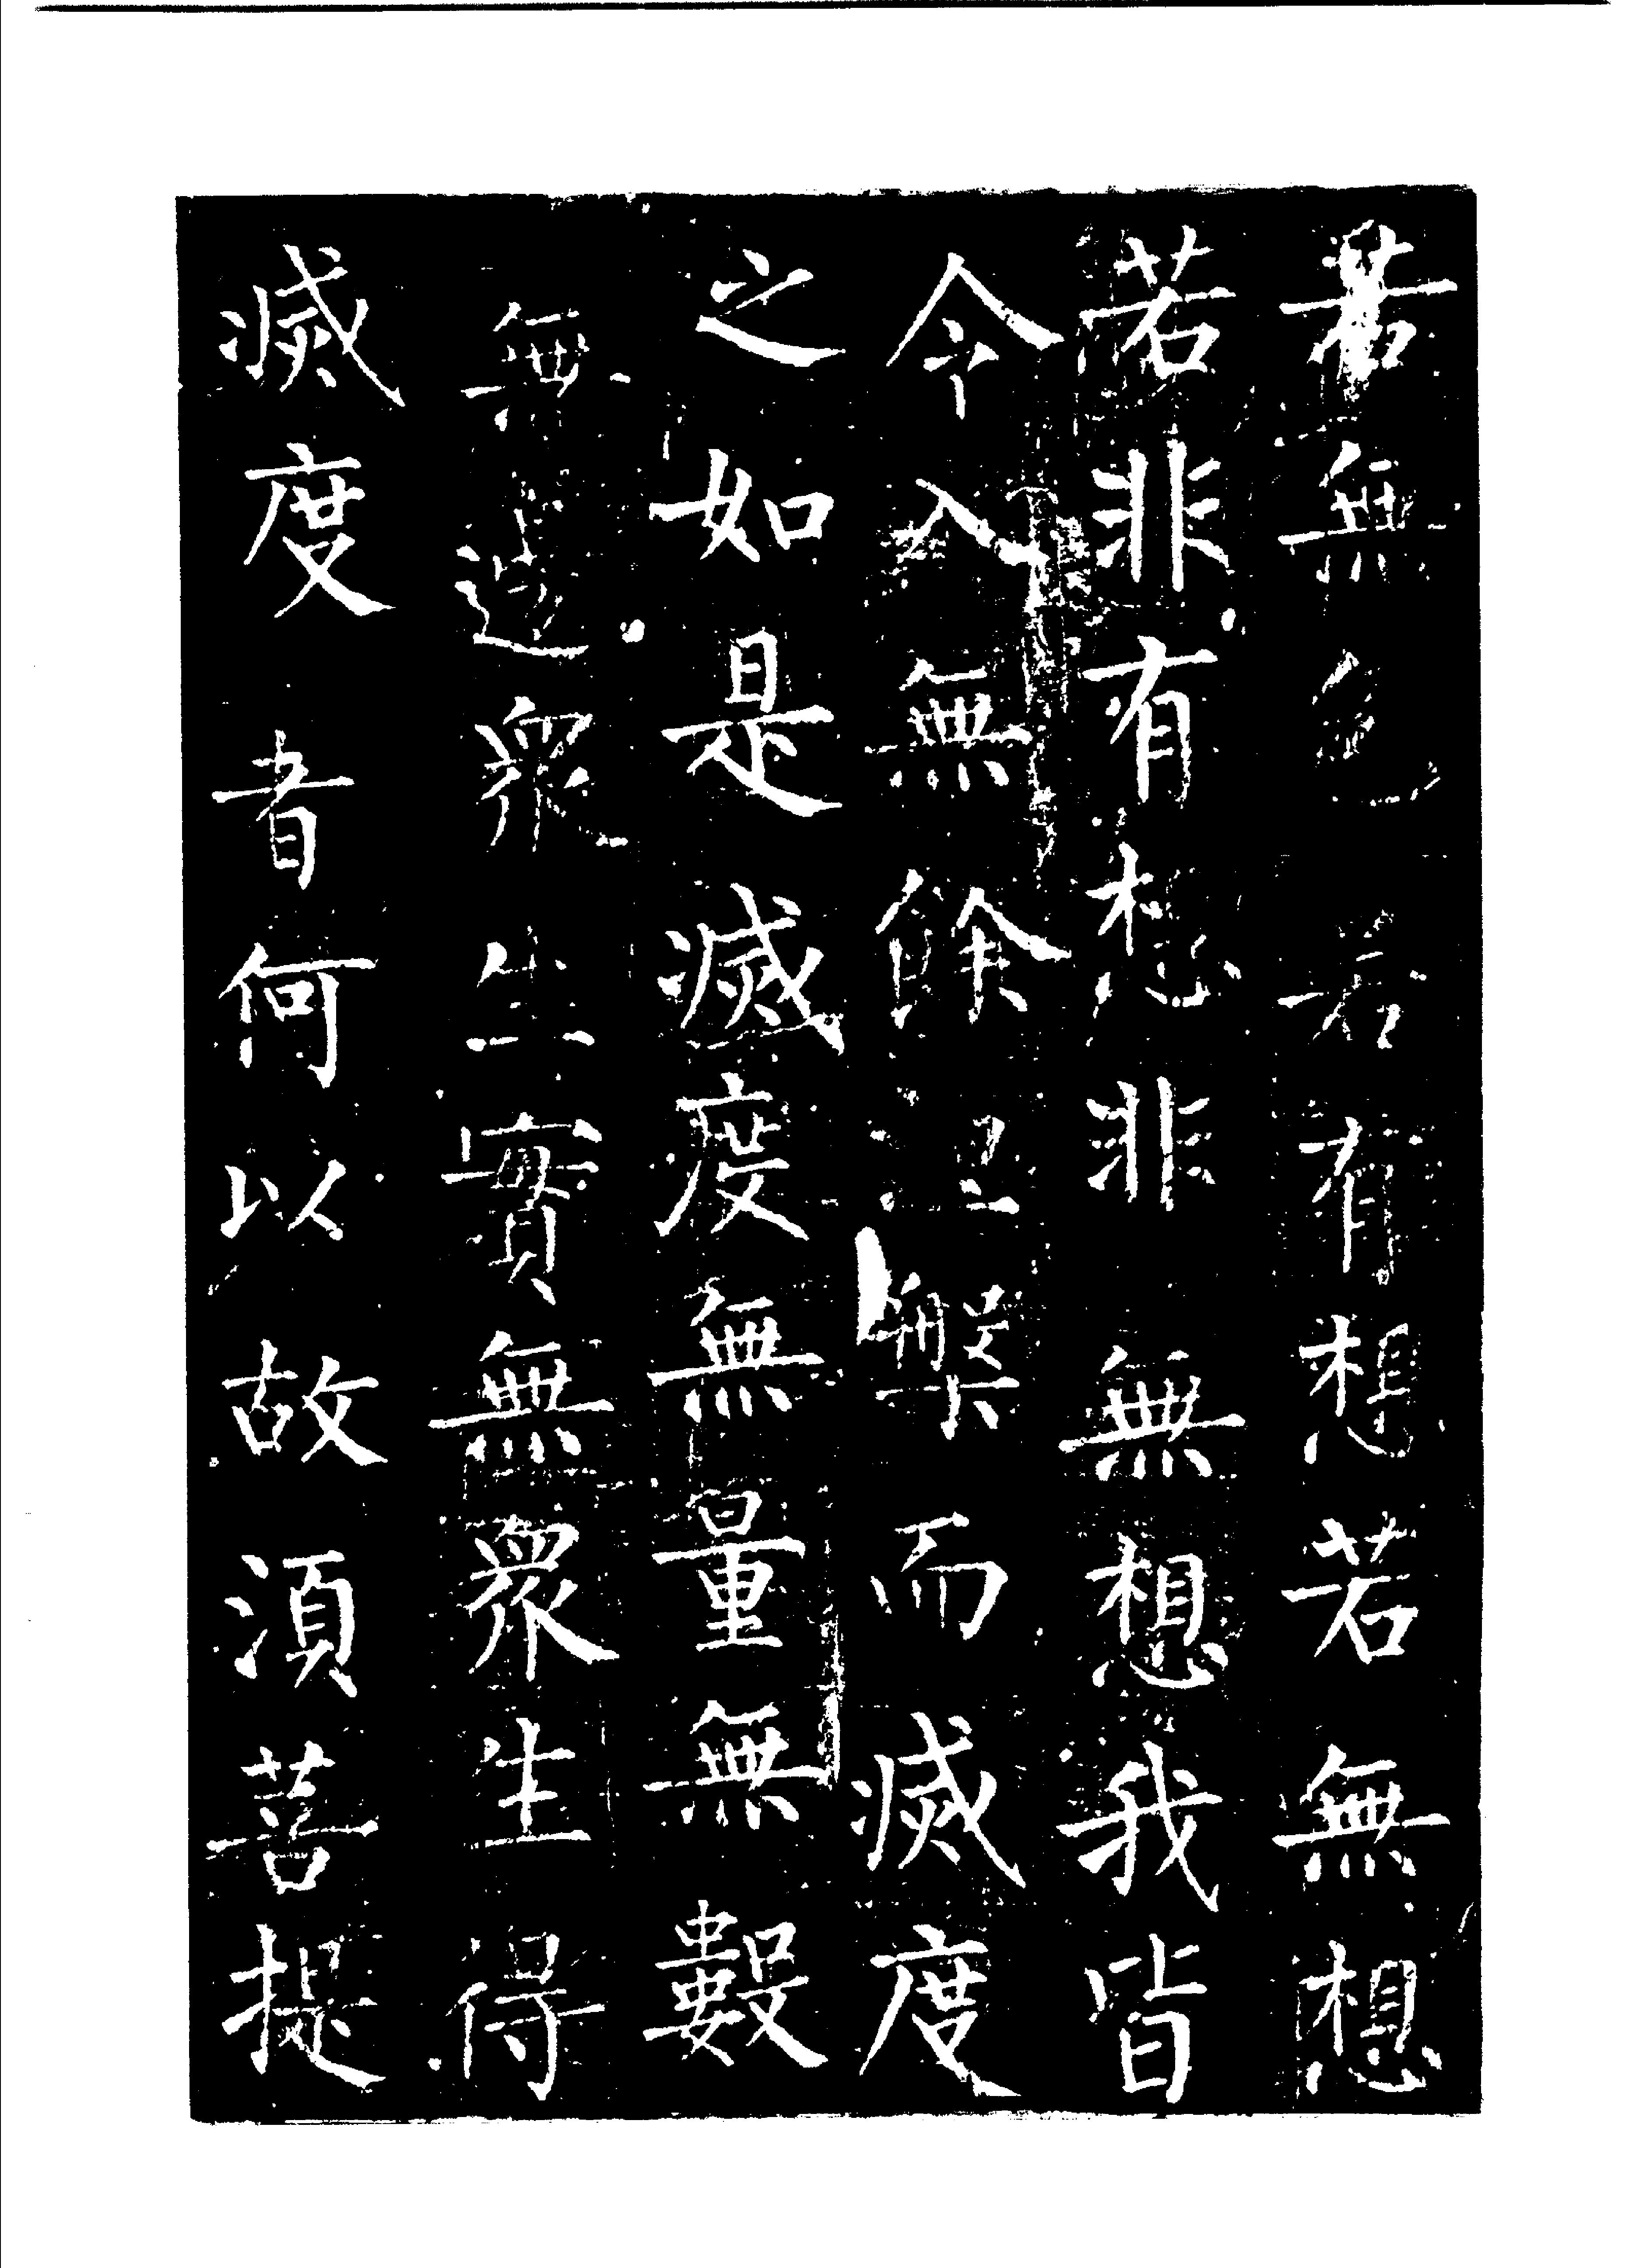 若無色若有想若無想
若非有想非無想我皆
令入無餘涅槃而滅度
之如是滅度無量無數
無邊眾生實無眾生得
滅度者何以故須菩提